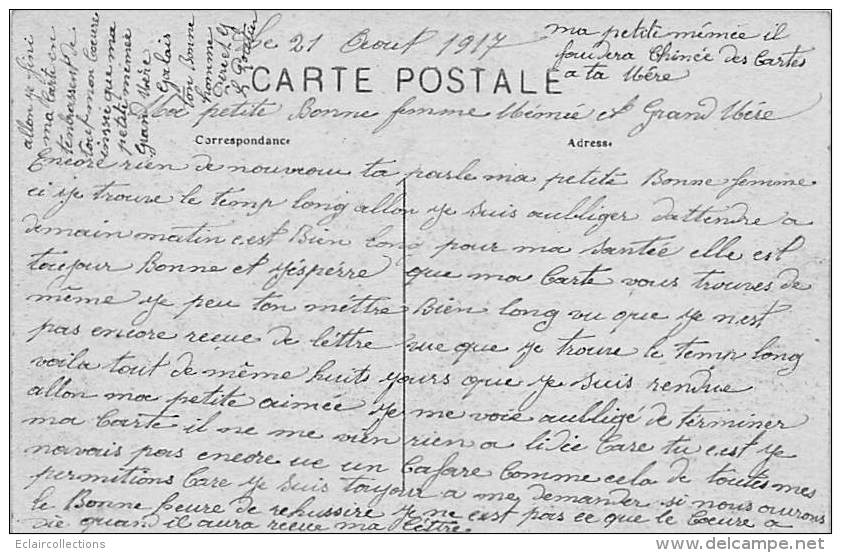 Le 21 Aout 1917
ma petite mémée il
faudera Chinée des Cartes
a ta Mére
CARTE POSTALE
Ma petite Bonne femme Mémée et Grand Mére
Correspondance
Adresse
Encore rien de nouveau ta parle ma petite Bonne femme
ci je trouve le temp long allon je suis aubliger dattendre a
demain matin cest Bien long pour ma santée elle est
toujour Bonne et j'éspérre que ma Carte vous trouves de
même je peu ton méttre Bien long vu que je nest
pas encore recue de léttre vue que je trouve le temp long
voila tout de même huit jours que je suis rendue
allon ma petite aimée je me voie aubligé de términer
ma Carte il ne me vien rien a lidée Care tu cest je
navais pas encore ue un Cafare Comme cela de toutes mes
permitions Care je suis toujour a me demander si nous aurons
le Bonne heure de rehussire je ne cest pas ce que le Coeure a
die quand il aura recue ma léttre
allon je fini
ma Carte en
tenbrassent de
tout mon Coeure
insie que ma
petite mémée
Grand Mére
ton Bonne
homme
Eclaircollections
©delcampe.net